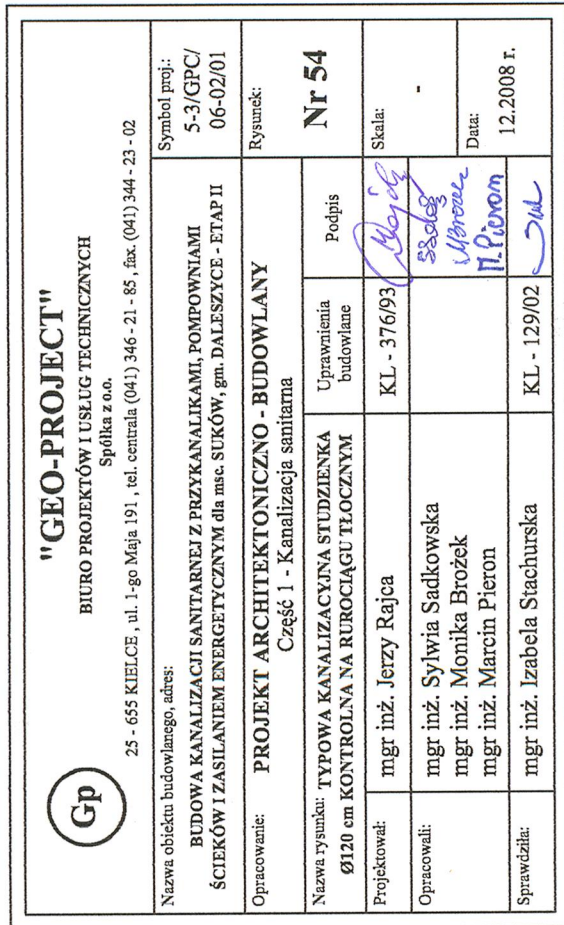 Gp
"GEO-PROJECT"
BIURO PROJEKTÓW I USŁUG TECHNICZNYCH
Spółka z o.o.
25 - 655 KIELCE , ul. 1-go Maja 191 , tel. centrala (041) 346 - 21 - 85 , fax. (041) 344 - 23 - 02
Nazwa obiektu budowlanego, adres:
BUDOWA KANALIZACJI SANITARNEJ Z PRZYKANALIKAMI, POMPOWNIAMI
ŚCIEKÓW I ZASILANIEM ENERGETYCZNYM dla msc. SUKÓW, gm. DALESZYCE - ETAP II
Symbol proj.:
5-3/GPC/
06-02/01
Opracowanie:
PROJEKT ARCHITEKTONICZNO - BUDOWLANY
Część 1 - Kanalizacja sanitarna
Rysunek:
Nr 54
Nazwa rysunku: TYPOWA KANALIZACYJNA STUDZIENKA
Ø120 cm KONTROLNA NA RUROCIĄGU TŁOCZNYM
Uprawnienia
budowlane
Podpis
Skala:
-
Projektował:
mgr inż. Jerzy Rajca
KL - 376/93
Opracowali:
mgr inż. Sylwia Sadkowska
mgr inż. Monika Brożek
MBrożek
mgr inż. Marcin Pieron
M.Pieron
Data:
12.2008 r.
Sprawdziła:
mgr inż. Izabela Stachurska
KL - 129/02